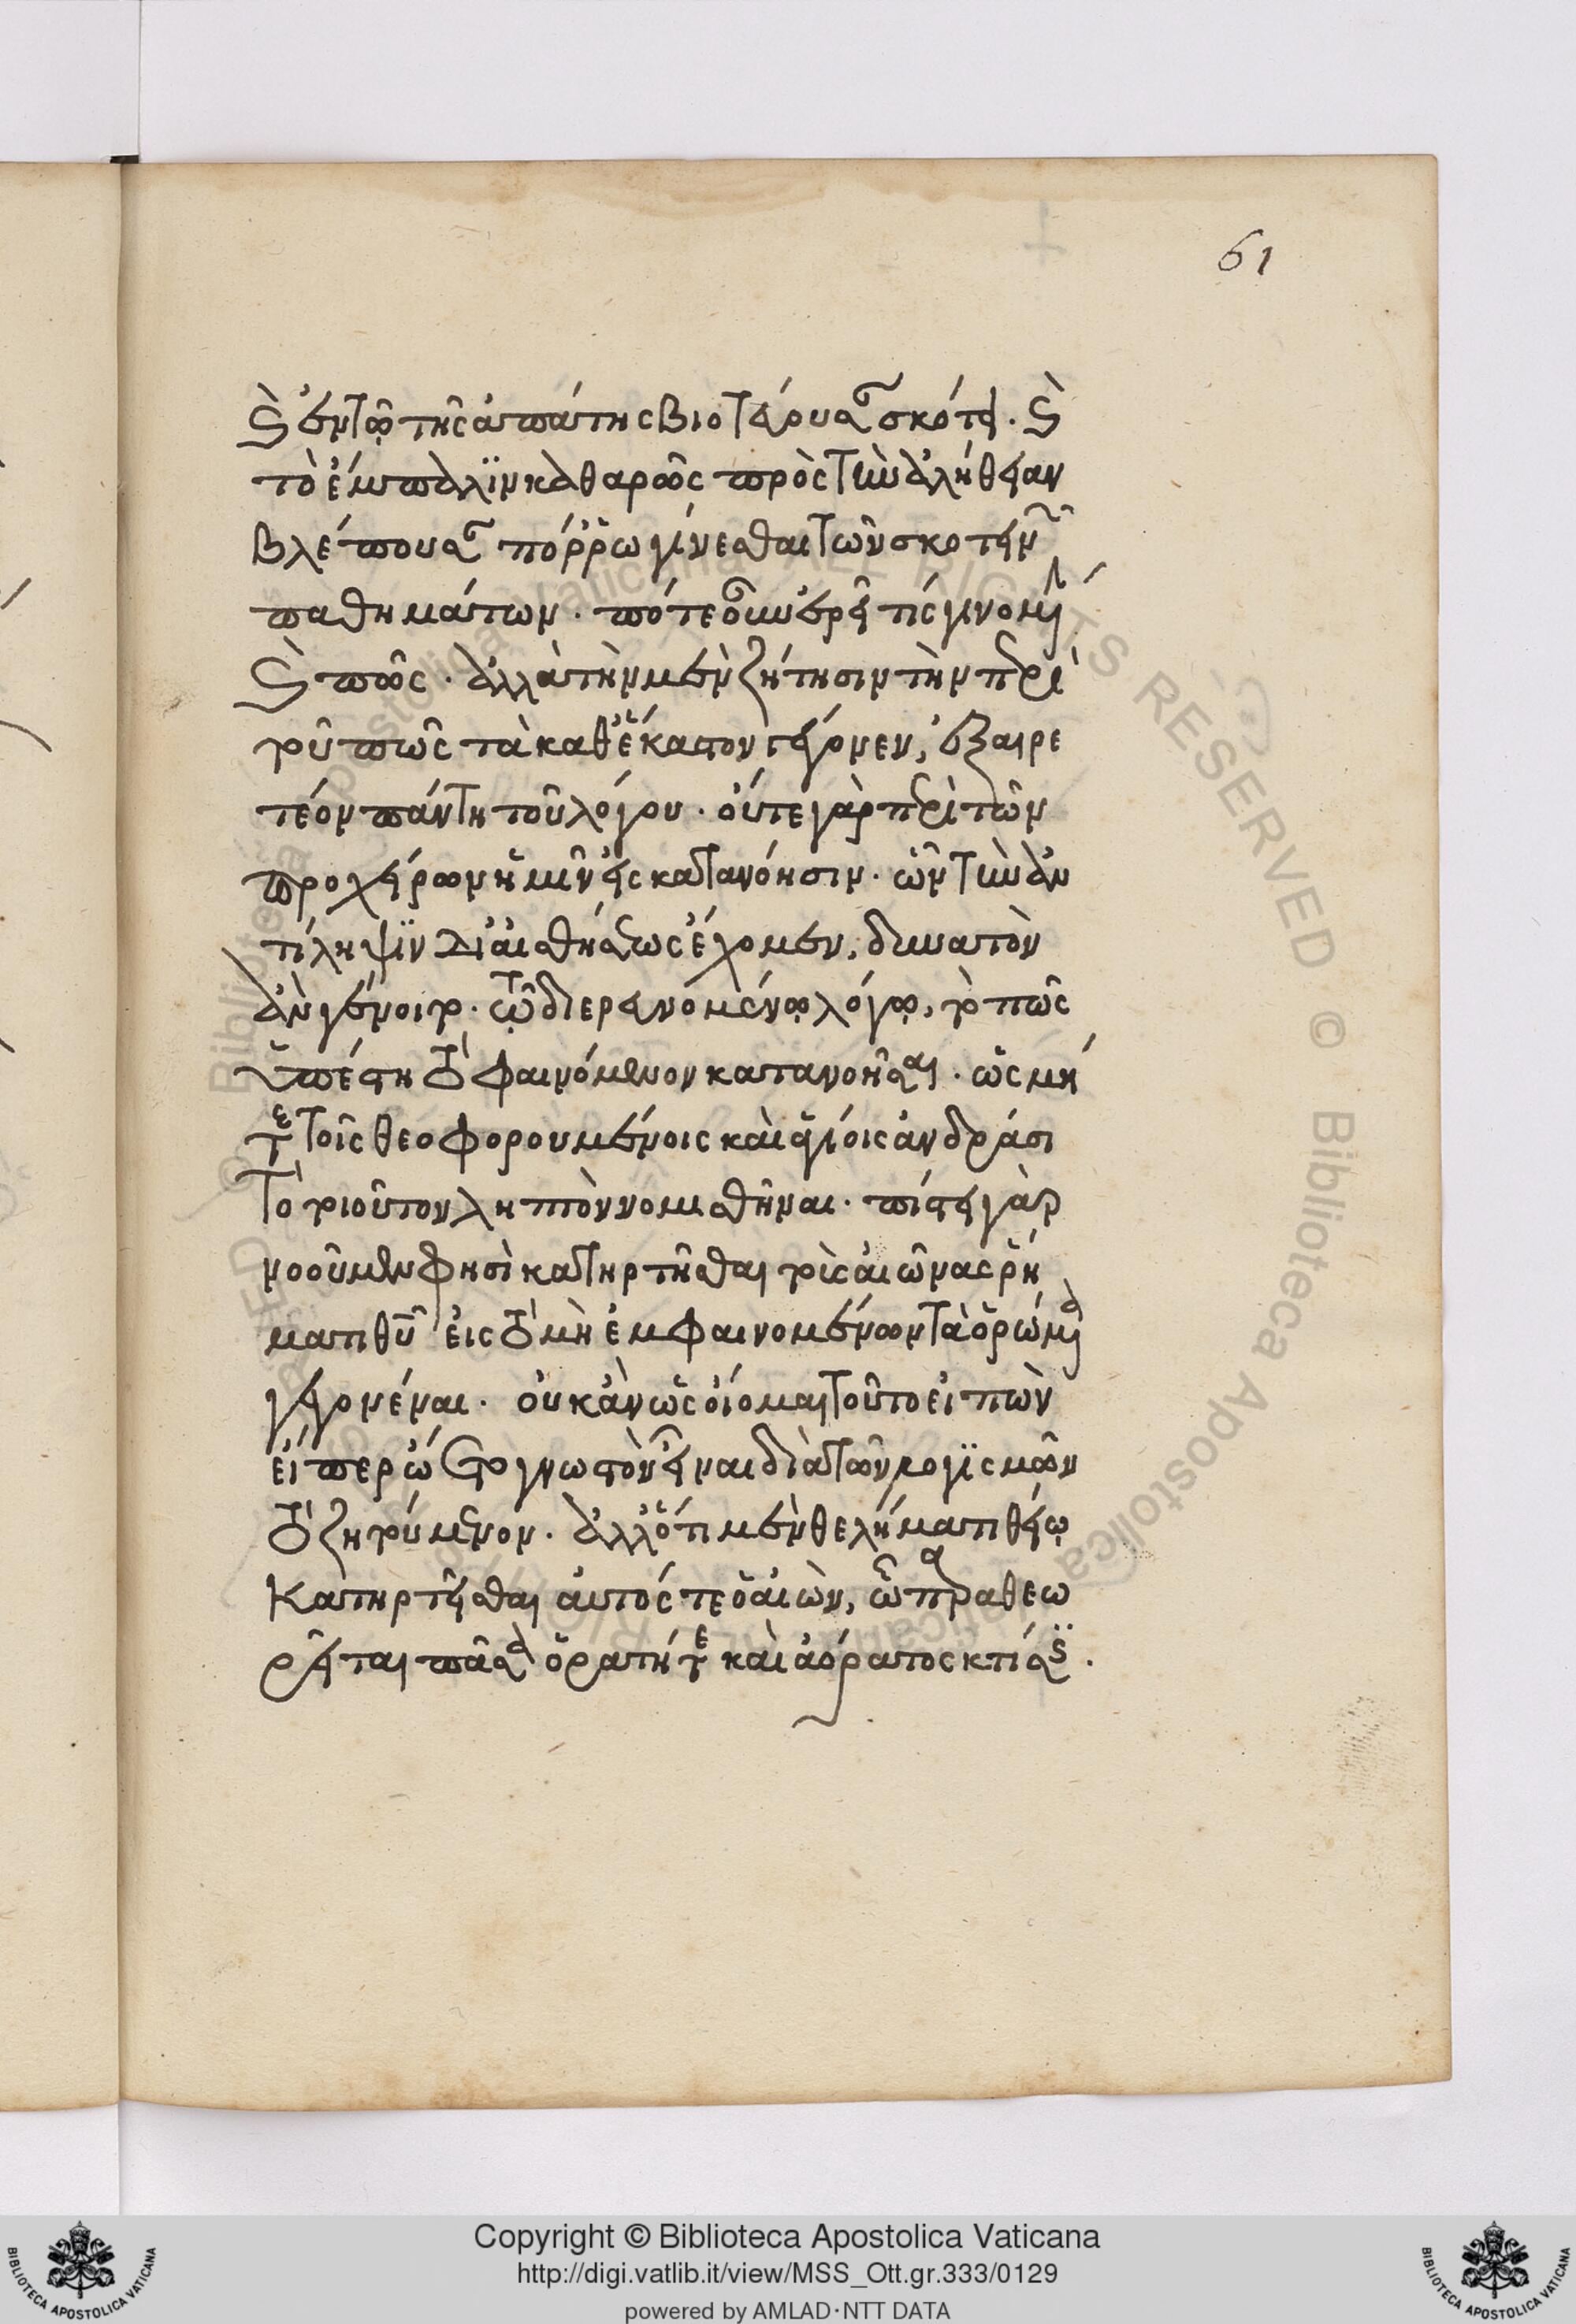 61
καὶ ἐν τῷ τῆς ἀπάτης βιοτεύουσα σκότει. καὶ
τὸ ἔμπαλιν καθαρῶς πρὸς τὴν ἀλήθειαν
βλέπουσα πόρρω γίνεσθαι τῶν σκοτεινῶν
παθημάτων. πότε οὖν ἐρεῖ τις γινομένη
καὶ πῶς. ἀλλὰ τὴν μὲν ζήτησιν τὴν περὶ
τοῦ πῶς τὰ καθ' ἕκαστον γέγονεν, ἐξαιρε
τέον πάντη τοῦ λόγου. οὔτε γὰρ περὶ τῶν
προχείρων ἡμῖν εἰς κατανόησιν. ὧν τὴν ἀν
τίληψιν δι' αἰσθήσεως ἔχομεν, δυνατὸν
ἂν γένοιτο. τῷ διερευνομένῳ λόγῳ, τὸ πῶς
ὑπέστη τὸ φαινόμενον κατανοῆσαι. ὡς μή
τε τοῖς θεοφορουμένοις καὶ ἁγίοις ἀνδράσι
τὸ τοιοῦτον ληπτὸν νομισθῆναι. πίστει γὰρ
νοοῦμεν φησὶ κατηρτῆσθαι τοὺς αἰῶνας ῥή
ματι θεοῦ εἰς τὸ μὴ ἐμφαινομένων τὰ ὁρώμενα
γεγονέναι. οὐκ ἂν ὡς οἴομαι τοῦτο εἰπὼν
εἴπερ ᾤετο γνωστὸν εἶναι διὰ τῶν λογισμῶν
τὸ ζητούμενον. ἀλλ' ὅτι μὲν θελήματι θείῳ
κατήρτισθαι αὐτός τε ὁ αἰὼν, ᾧ παραθεω
ρεῖται πᾶσα ὁρατή τε καὶ ἀόρατος κτίσις.
Copyright © Biblioteca Apostolica Vaticana
http://digi.vatlib.it/view/MSS_Ott.gr.333/0129
powered by AMLAD·NTT DATA